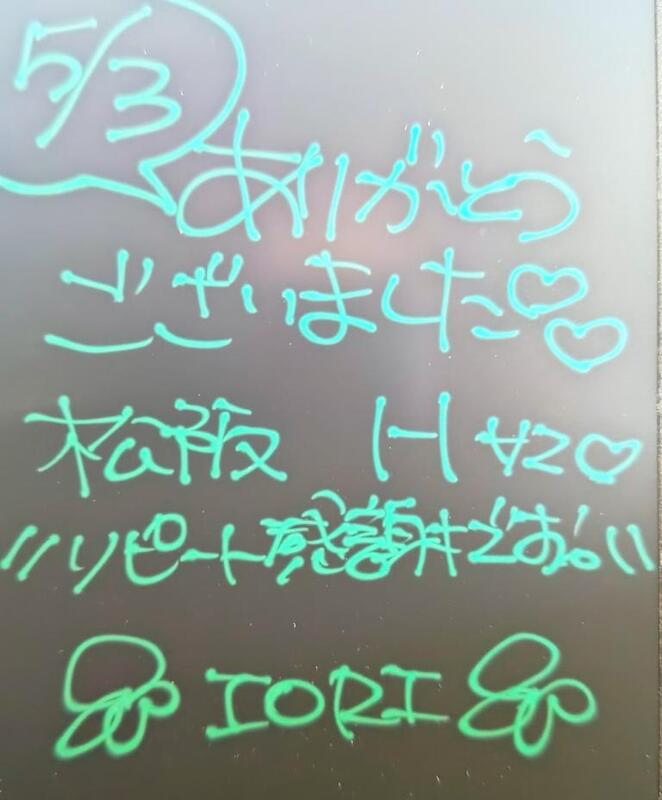 5/3
ありがとう
ございました♡♡
松阪 H
リピート感謝
IORI